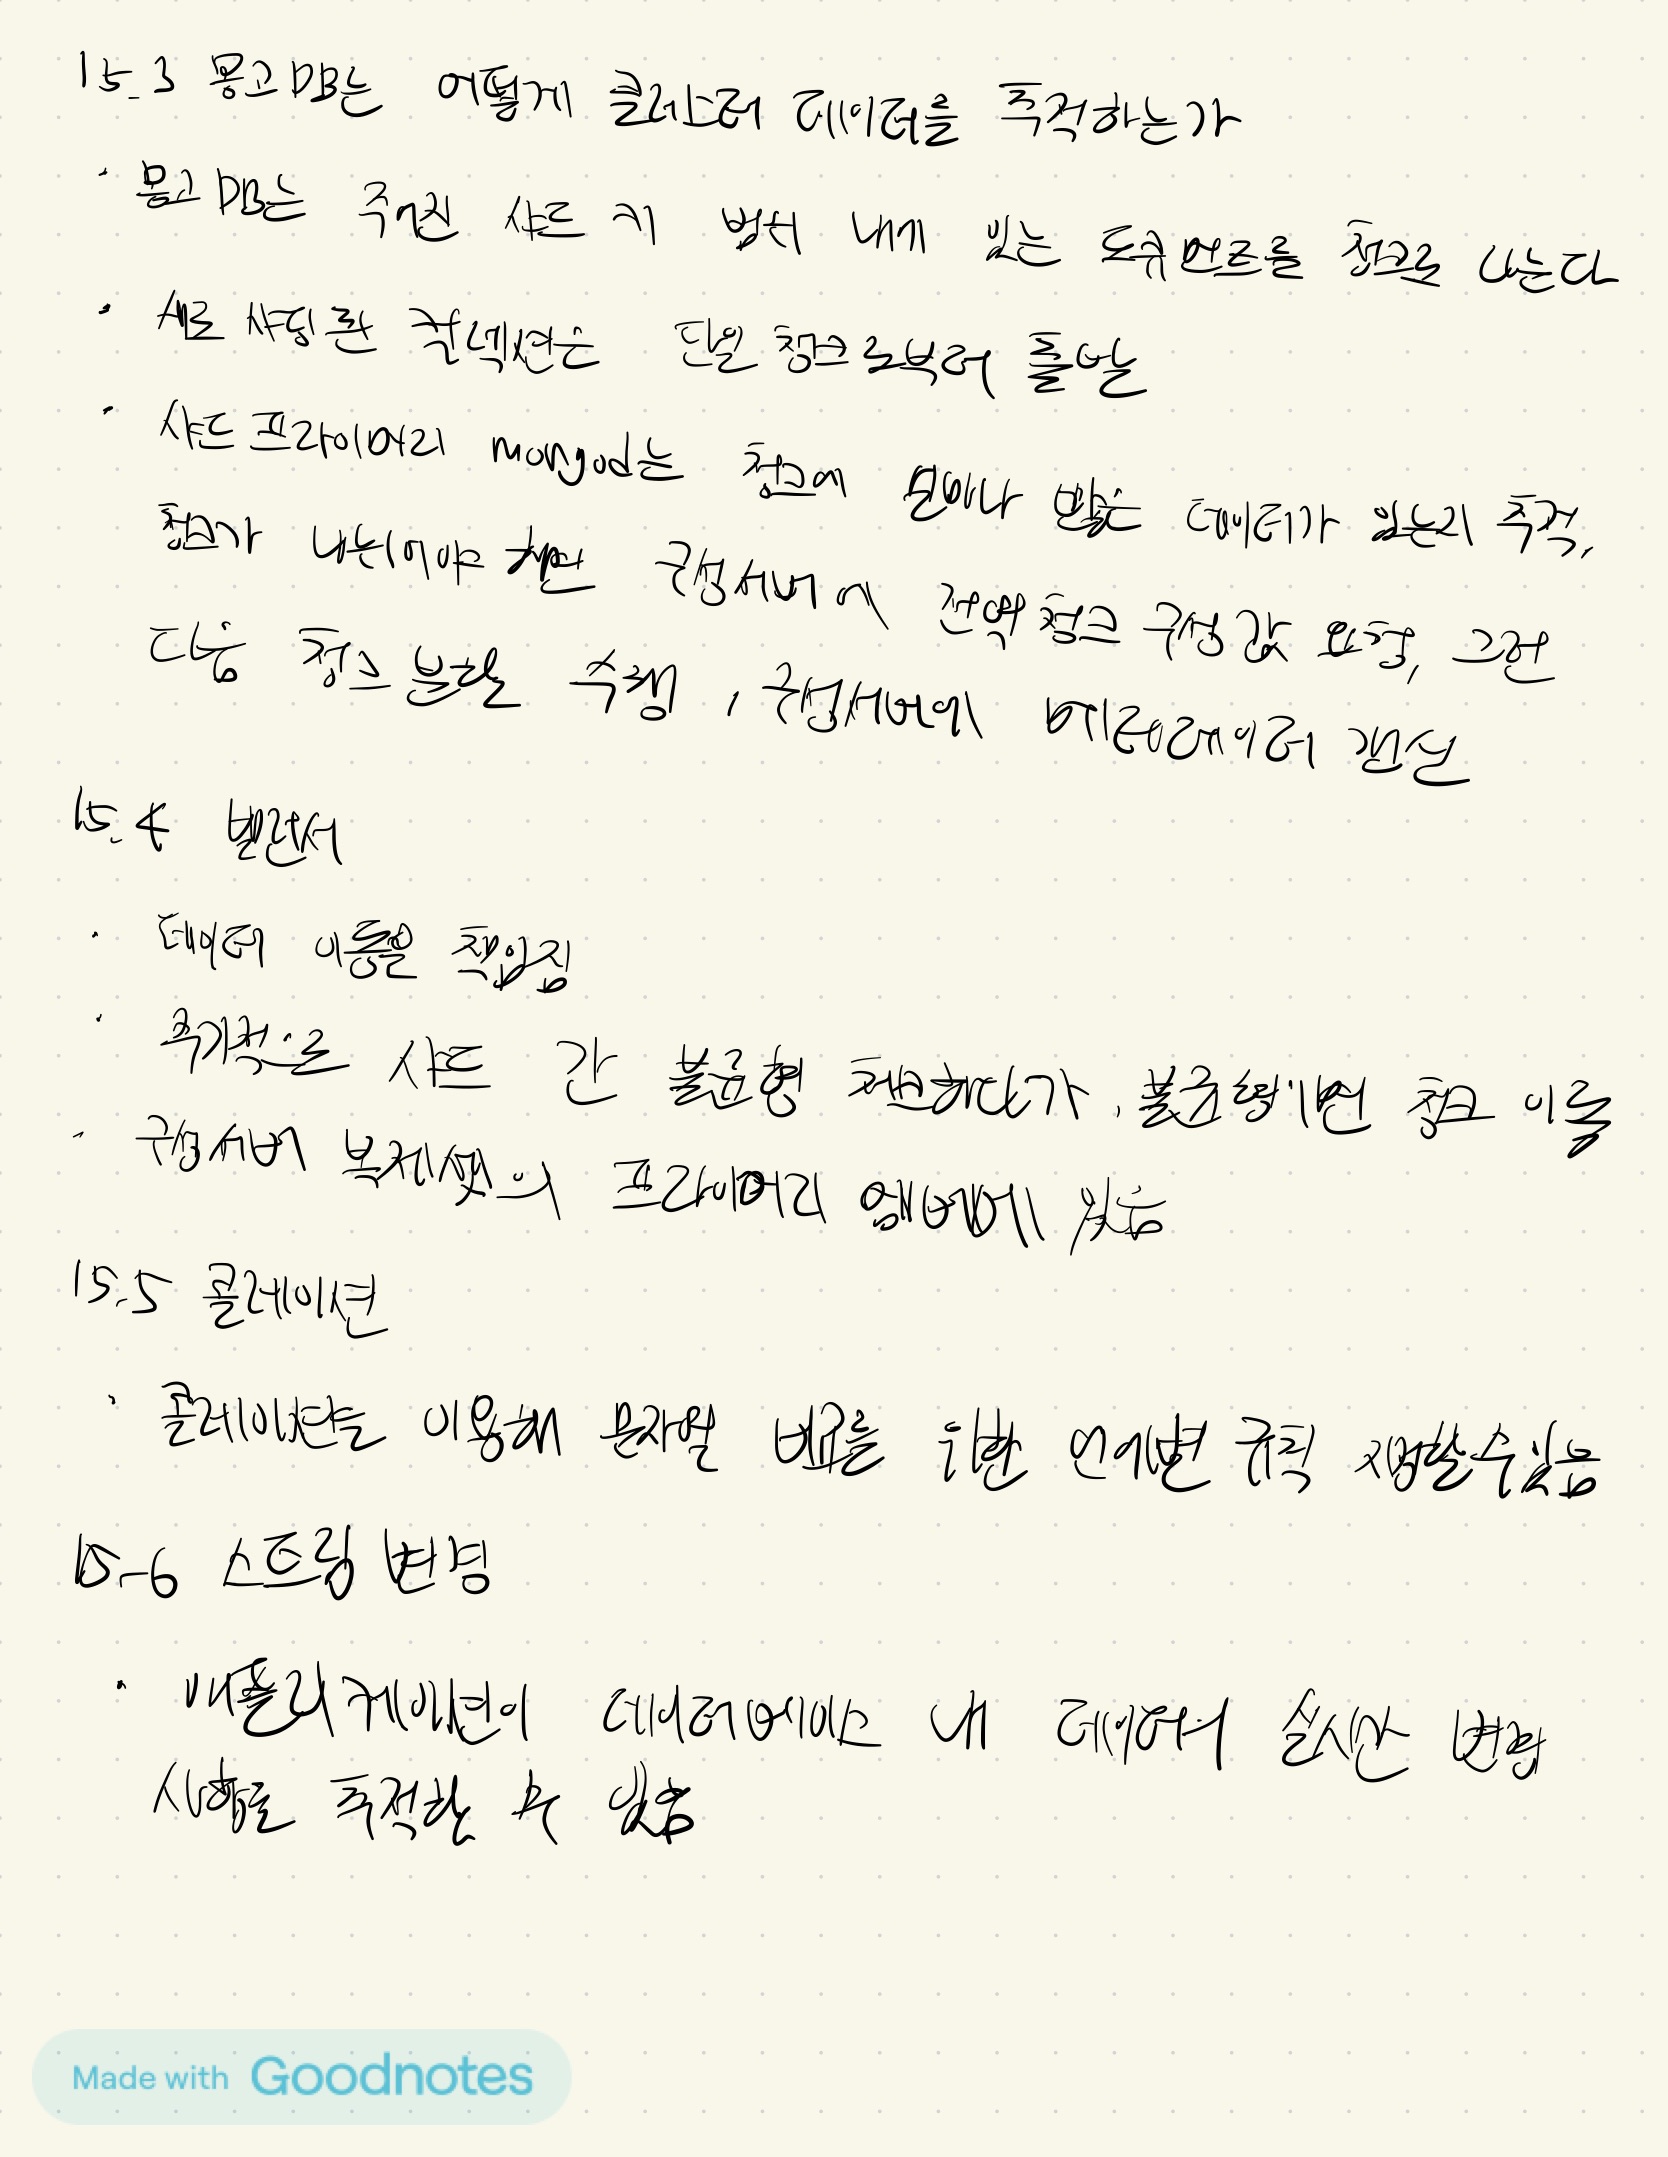 15.3 몽고DB는 어떻게 클러스터 데이터를 추적하는가
· 몽고DB는 주어진 샤드 키 범위 내에 있는 도큐먼트를 청크로 나눈다
· 새로 샤딩된 컬렉션은 단일 청크로부터 출발
· 샤드 프라이머리 mongod는 청크에 얼마나 많은 데이터가 있는지 추적,
청크가 나뉘어야 하면 구성서버에 전역 청크 구성 값 요청, 그런
다음 청크 분할 수행, 구성서버에 메타데이터 갱신
15.4 밸런서
· 데이터 이동을 책임짐
· 주기적으로 샤드 간 불균형 체크하다가, 불균형이면 청크 이동
· 구성서버 복제셋의 프라이머리 멤버에 있음
15.5 콜레이션
· 콜레이션을 이용해 문자열 비교를 위한 언어별 규칙 지정할 수 있음
15-6 스트림 변경
· 애플리케이션이 데이터베이스 내 데이터의 실시간 변경
사항을 추적할 수 있음
Made with Goodnotes